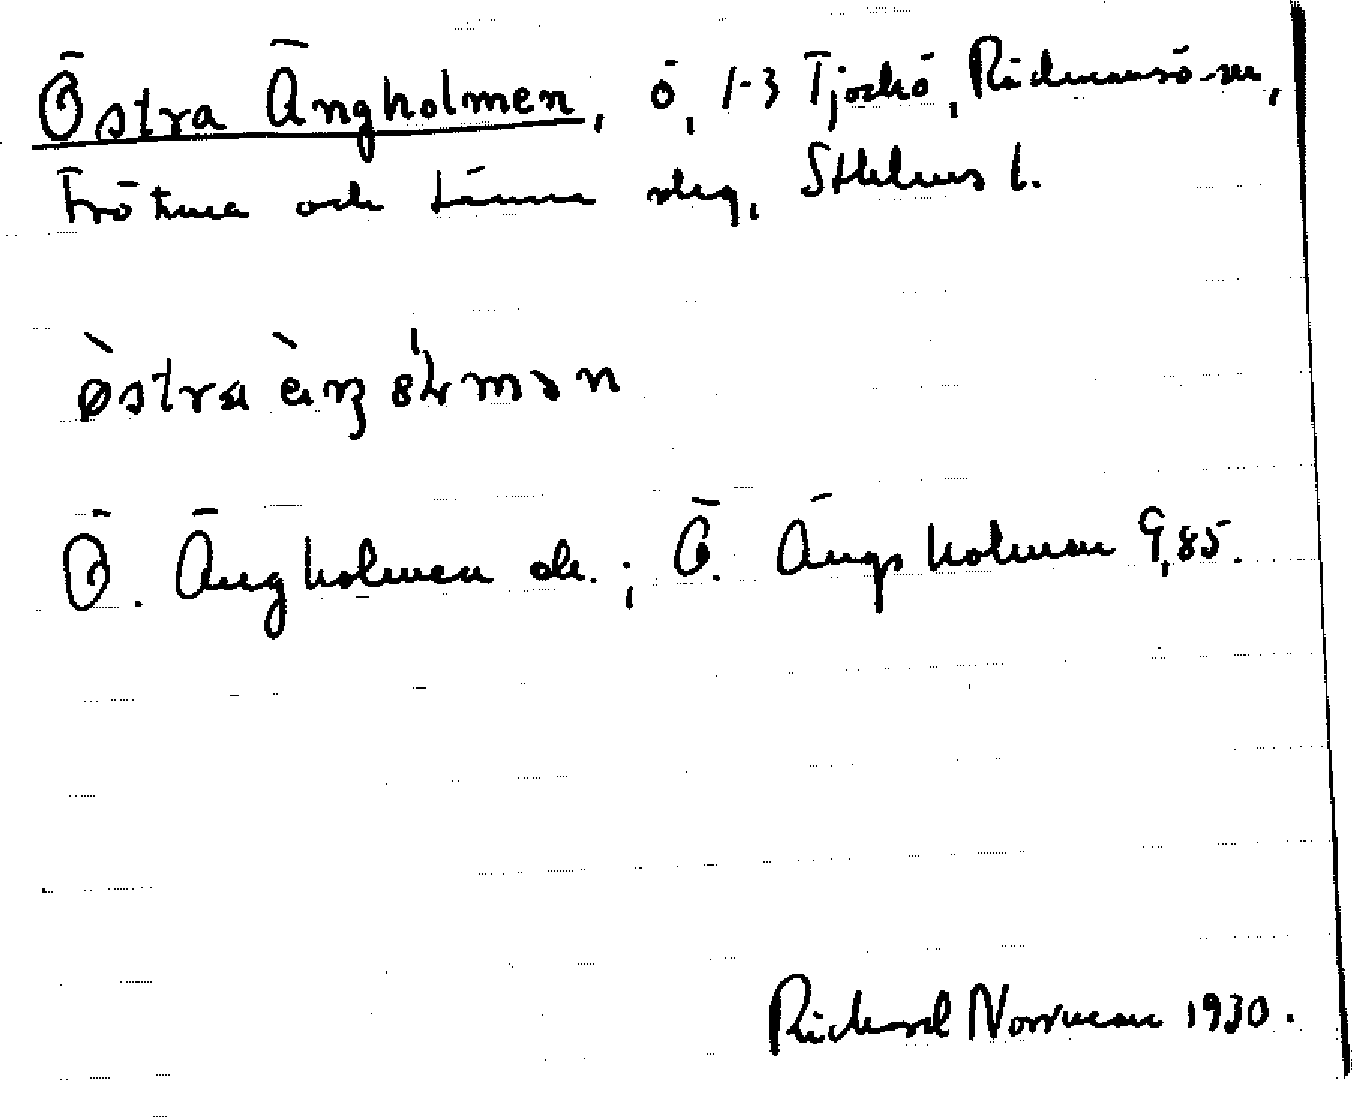 Östra Ängholmen, ö, 1-3 Tjockö, Rådmansö sn,
Frötuna och Länna skg, Sthlms l.
östra äŋȣɬmən
Ö. Ängholmen ek.; Ö. Ängsholmen G. 85.
Richard Norrman 1930.